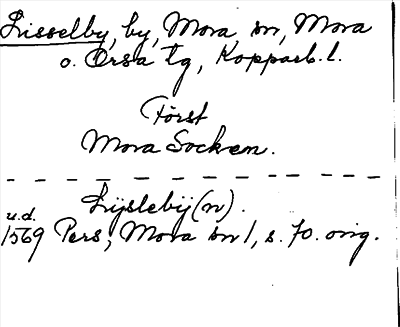 Lisselby, by, Mora sn, Mora
o. Orsa tg, Kopparb. l.
Först
Mora Socken.
Lijslebij(n).
u.d.
1569 Pers, Mora sn 1, s. 70. orig.